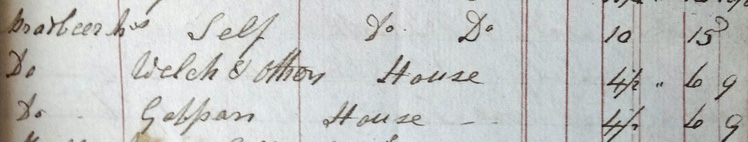 Self Do Do 10 15
Do Welch & others House 4½ " 6 9
Do House 4½ 6 9